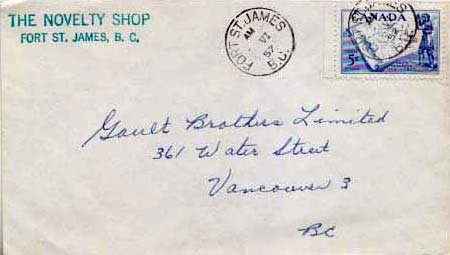 THE NOVELTY SHOP
FORT ST. JAMES, B. C.
FORT ST. JAMES
AM
VI
57
B.C.
CANADA
5¢
Gault Brothers Limited
361 Water Street
Vancouver 3
BC